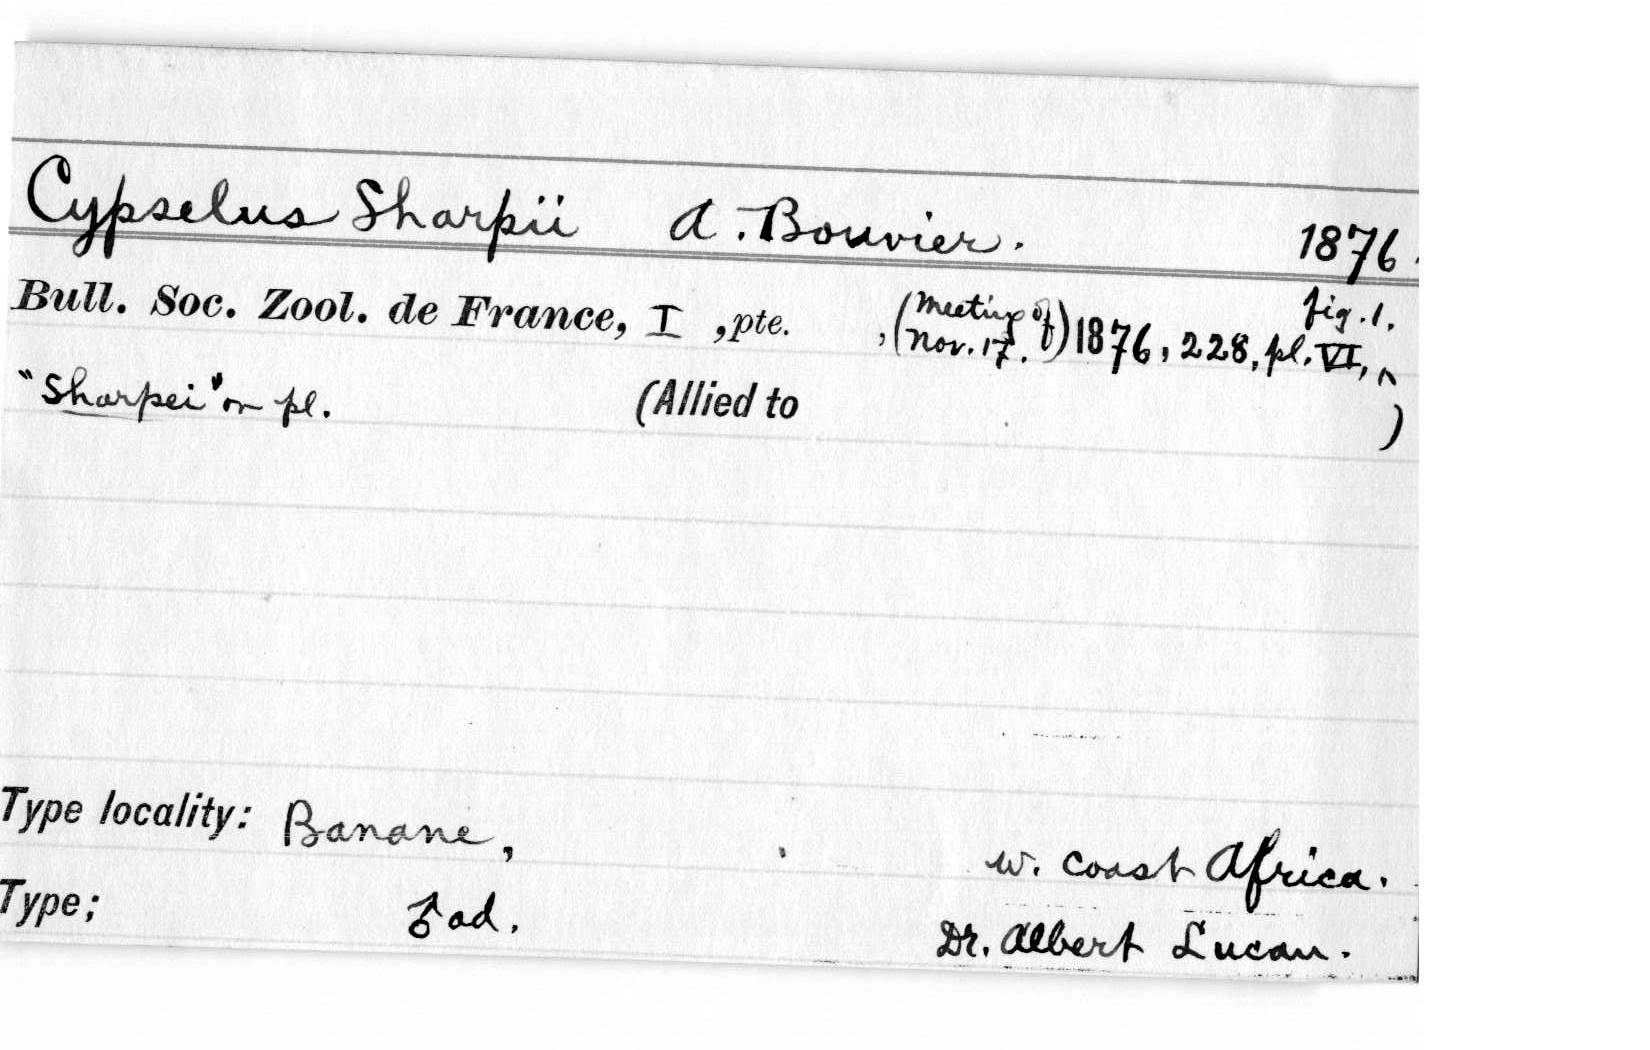 Cypselus Sharpii A. Bouvier. 1876.
Bull. Soc. Zool. de France, I , pte. , (Meeting of Nov. 17.) 1876, 228, pl. VI, ^ fig. 1.
"Sharpei" on pl. (Allied to )
Type locality: Banane, W. Coast Africa.
Type; ♂ ad. Dr. Albert Lucan.